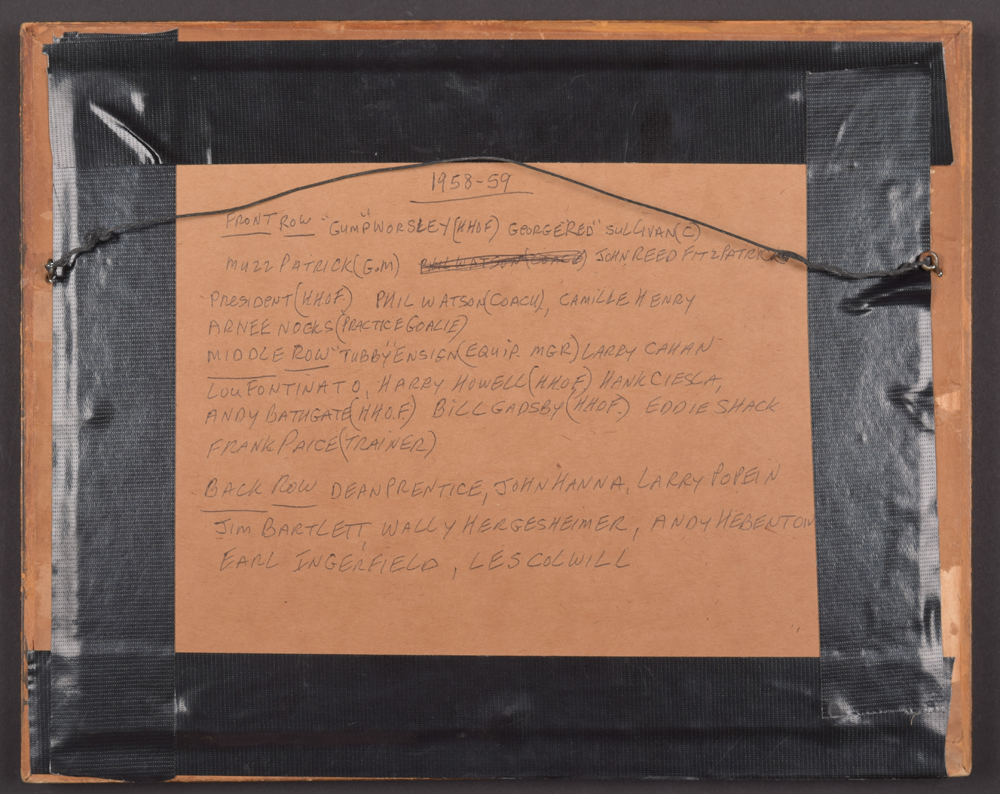 1958-59
FRONT ROW "GUMP" WORSLEY (HHOF) GEORGE "RED" SULLIVAN (C)
MUZZ PATRICK (G.M) PHIL WATSON (COACH) JOHN REED FITZPATRICK
PRESIDENT (H.H.O.F.) PHIL WATSON (COACH), CAMILLE HENRY
ARNEE NOCKS (PRACTICE GOALIE)
MIDDLE ROW "TUBBY" ENSIGN (EQUIP. MGR) LARRY CAHAN
LOU FONTINATO, HARRY HOWELL (HHOF) HANK CIESLA,
ANDY BATHGATE (H.H.O.F.) BILL GADSBY (HHOF) EDDIE SHACK
FRANK PAICE (TRAINER)
BACK ROW DEAN PRENTICE, JOHN HANNA, LARRY POPEIN
JIM BARTLETT, WALLY HERGESHEIMER, ANDY HEBENTON
EARL INGERFIELD, LES COLWILL